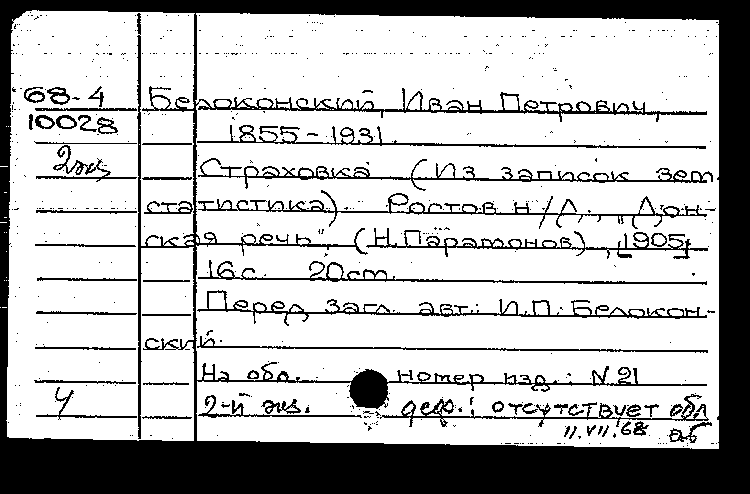 68-4 Белоконский, Иван Петрович,
10028 1855-1931.
2 экз Страховка (Из записок зем.
статистика). Ростов н/Д., „Дон-
ская речь", (Н. Парамонов), [1905]
16 с. 20 см.
Перед загл. авт.: И.П. Белокон-
ский.
На обл. номер изд.: N 21
4 2-й экз. деф.: отсутствует обл
11.VII.68 аб